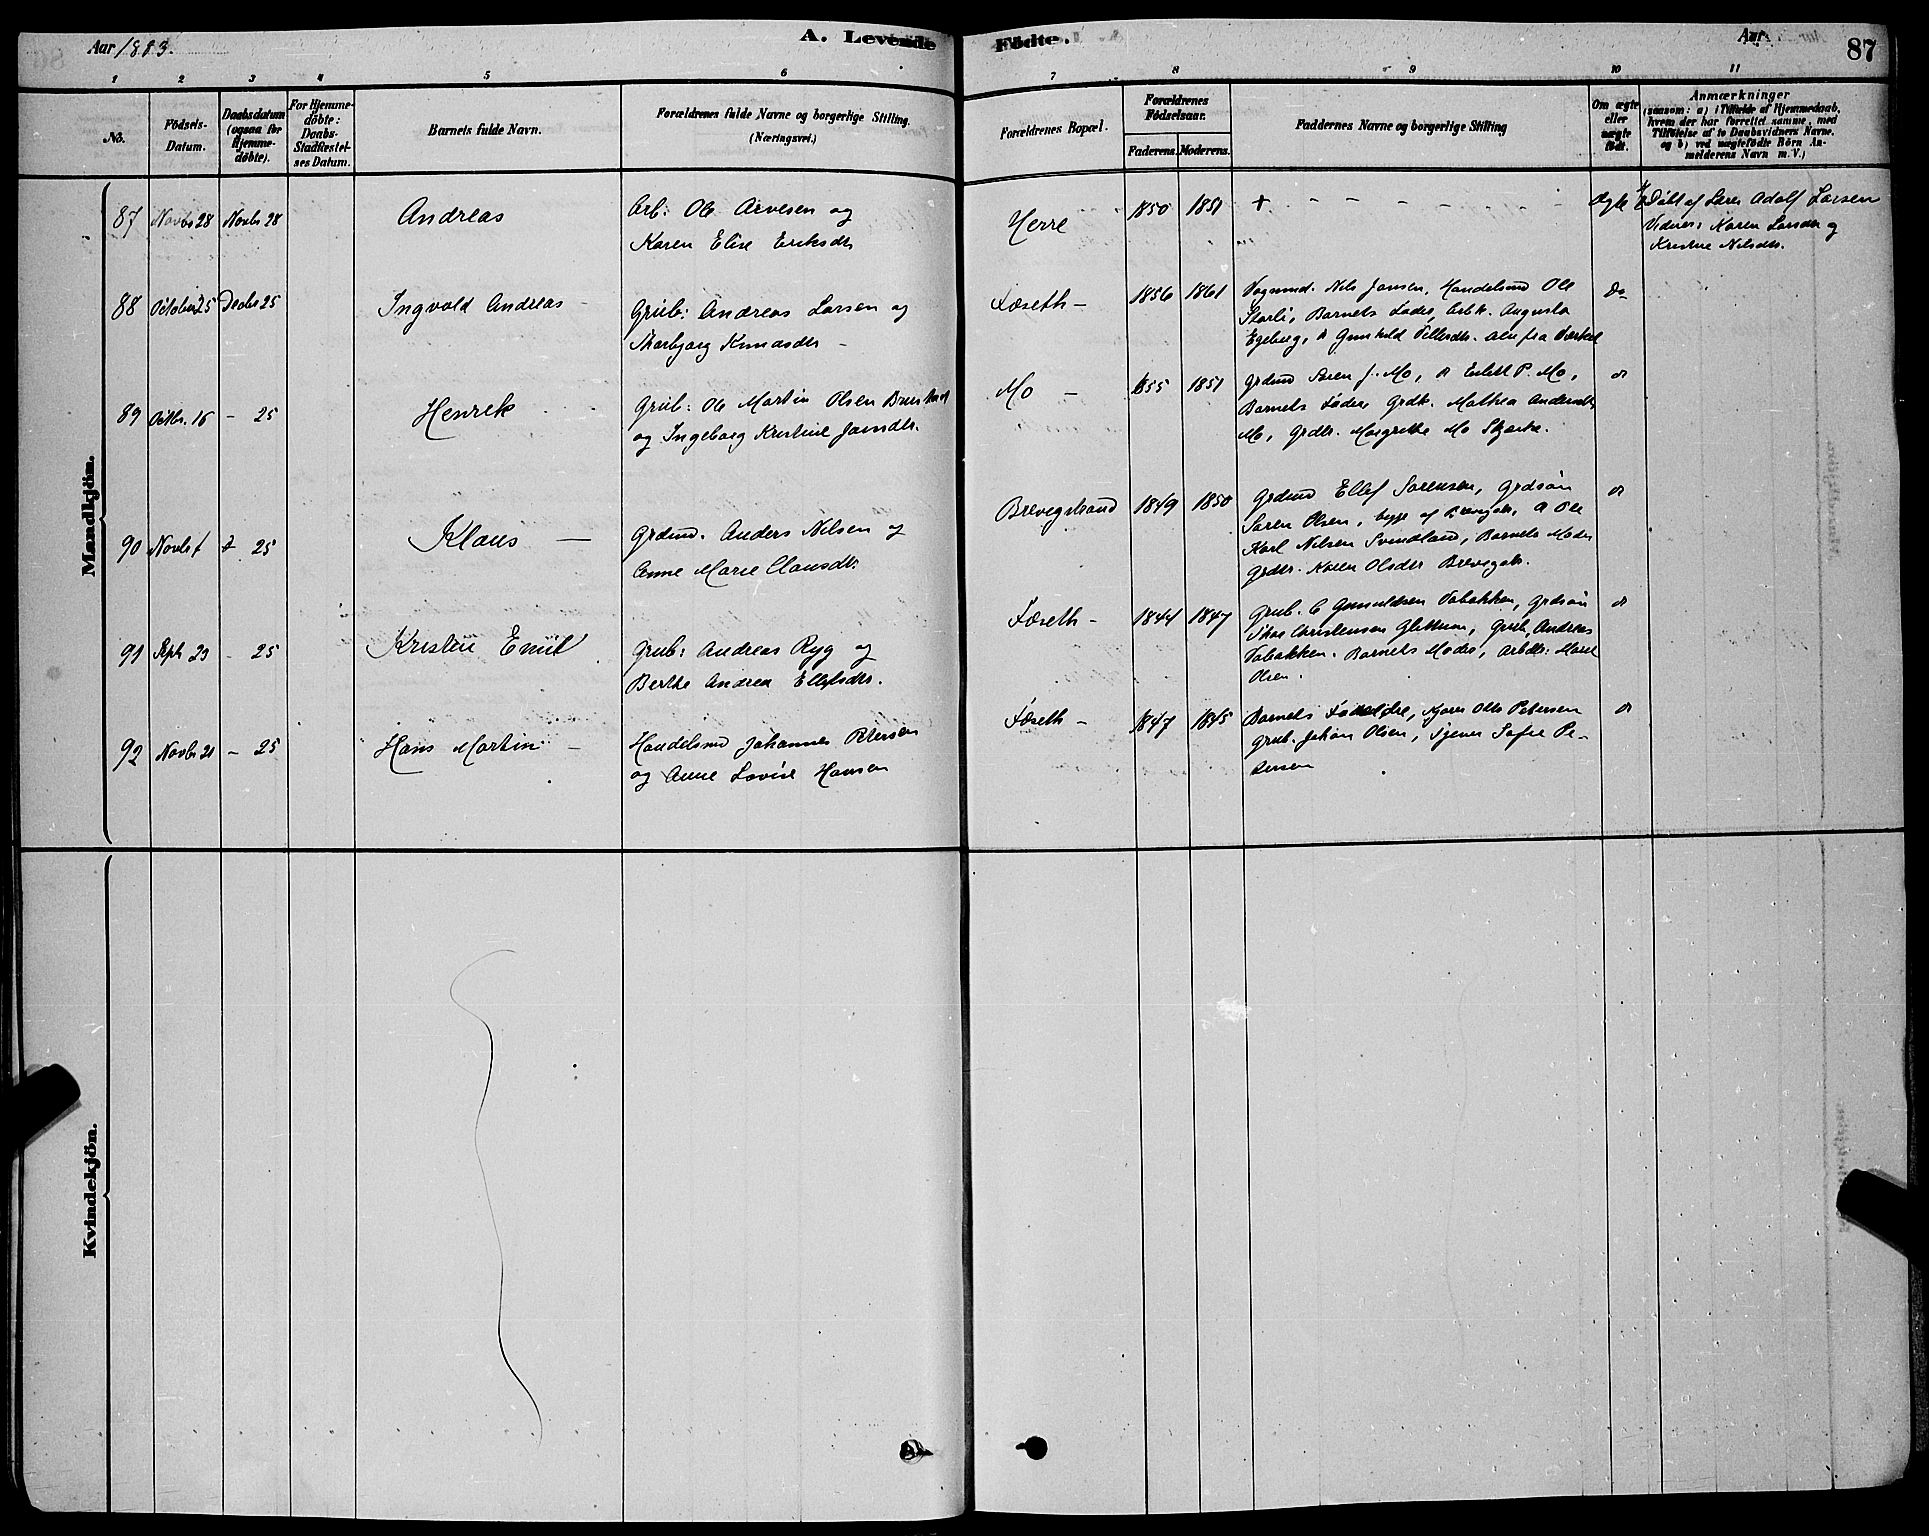 Aar 1883.
A. Levende
Födte.
Aar
87
1 2 3 4 5 6 7 8 9 10 11
No.
Födsels-
Datum.
Daabsdatum
(ogsaa for
Hjemme-
döbte).
For Hjemme-
döbte:
Daabs-
Stadfæstel-
ses Datum.
Barnets fulde Navn.
Forældrenes fulde Navne og borgerlige Stilling
(Næringsvei.)
Forældrenes Bopæl.
Forældrenes
Födselsaar.
Faderens. Moderens.
Faddernes Navne og borgerlige Stilling
Om ægte
eller
uægte
födt.
Anmærkninger
(saasom: a) i Tilfælde af Hjemmedaab,
hvem der har forrettet samme, med
Tilföielse af to Daabsvidners Navne,
og b) ved uægtefödte Börn An-
melderens Navn m. V.)
Mandkjön.
87 Novbr 28 Novbr 28 Andreas
Arb: Ole Arvesen og
Karen Elise Eriksdtr
Herre 1850 1851 + - - - - - - - - Ægte
Döbt af Lærer Adolf Larsen
Vidner: Karen Larsdtr og
Kristine Nilsdtr.
88 October 25 Decbr 25 Ingvald Andreas
Grub: Andreas Larsen og
Thorbjorg Knudsdtr -
Foseth - 1856 1861
Vognmd. Nils Jansen, Handelsmd Ole
Storli, Barnets Fader, Arbk. Augusta
Egeberg, & Gunhild Tellefsdtr. alle fra Værket
do
89 Octbr. 16 - 25 Henrik
Grub: Ole Martin Olsen
og Ingeborg Kristine Jansdtr.
Mo - 1855 1851
Grdmd Søren J. Mo, & Erlett P. Mo,
Barnets Fader, Grdk. Mathea Andersdtr
Mo, Grdtr. Margrethe Mo
90 Novbr 1 25 Klaus -
Grdmd. Anders Nilsen og
Anne Marie Clausdtr.
Brevigstrand 1849 1850
Grdmd Ellef Sørensen, Grdsøn
Søren Olsen, begge af & Ole
Karl Nilsen Svendland, Barnets Moder
Grdtr. Karen Olsdtr
91 Septr 29 - 25 Kristen Emil
Grub: Andreas Ryg og
Berthe Andrea Ellefsdtr.
Foseth - 1844 1847
Grub. Vabakken, Grdsøn
Christensen Grub. Andreas
Vabakken. Barnets Moder, Arbdtr:
Olsen.
92 Novbr 21 - 25 Hans Martin -
Handelsmd Johannes Petersen
og Anne Lovise Hansen
Foseth - 1847 1845
Barnets Forældre, Otto Petersen
Grub. Johan Olsen, Pigen Sofie Pe-
tersen
Kvindekjön.